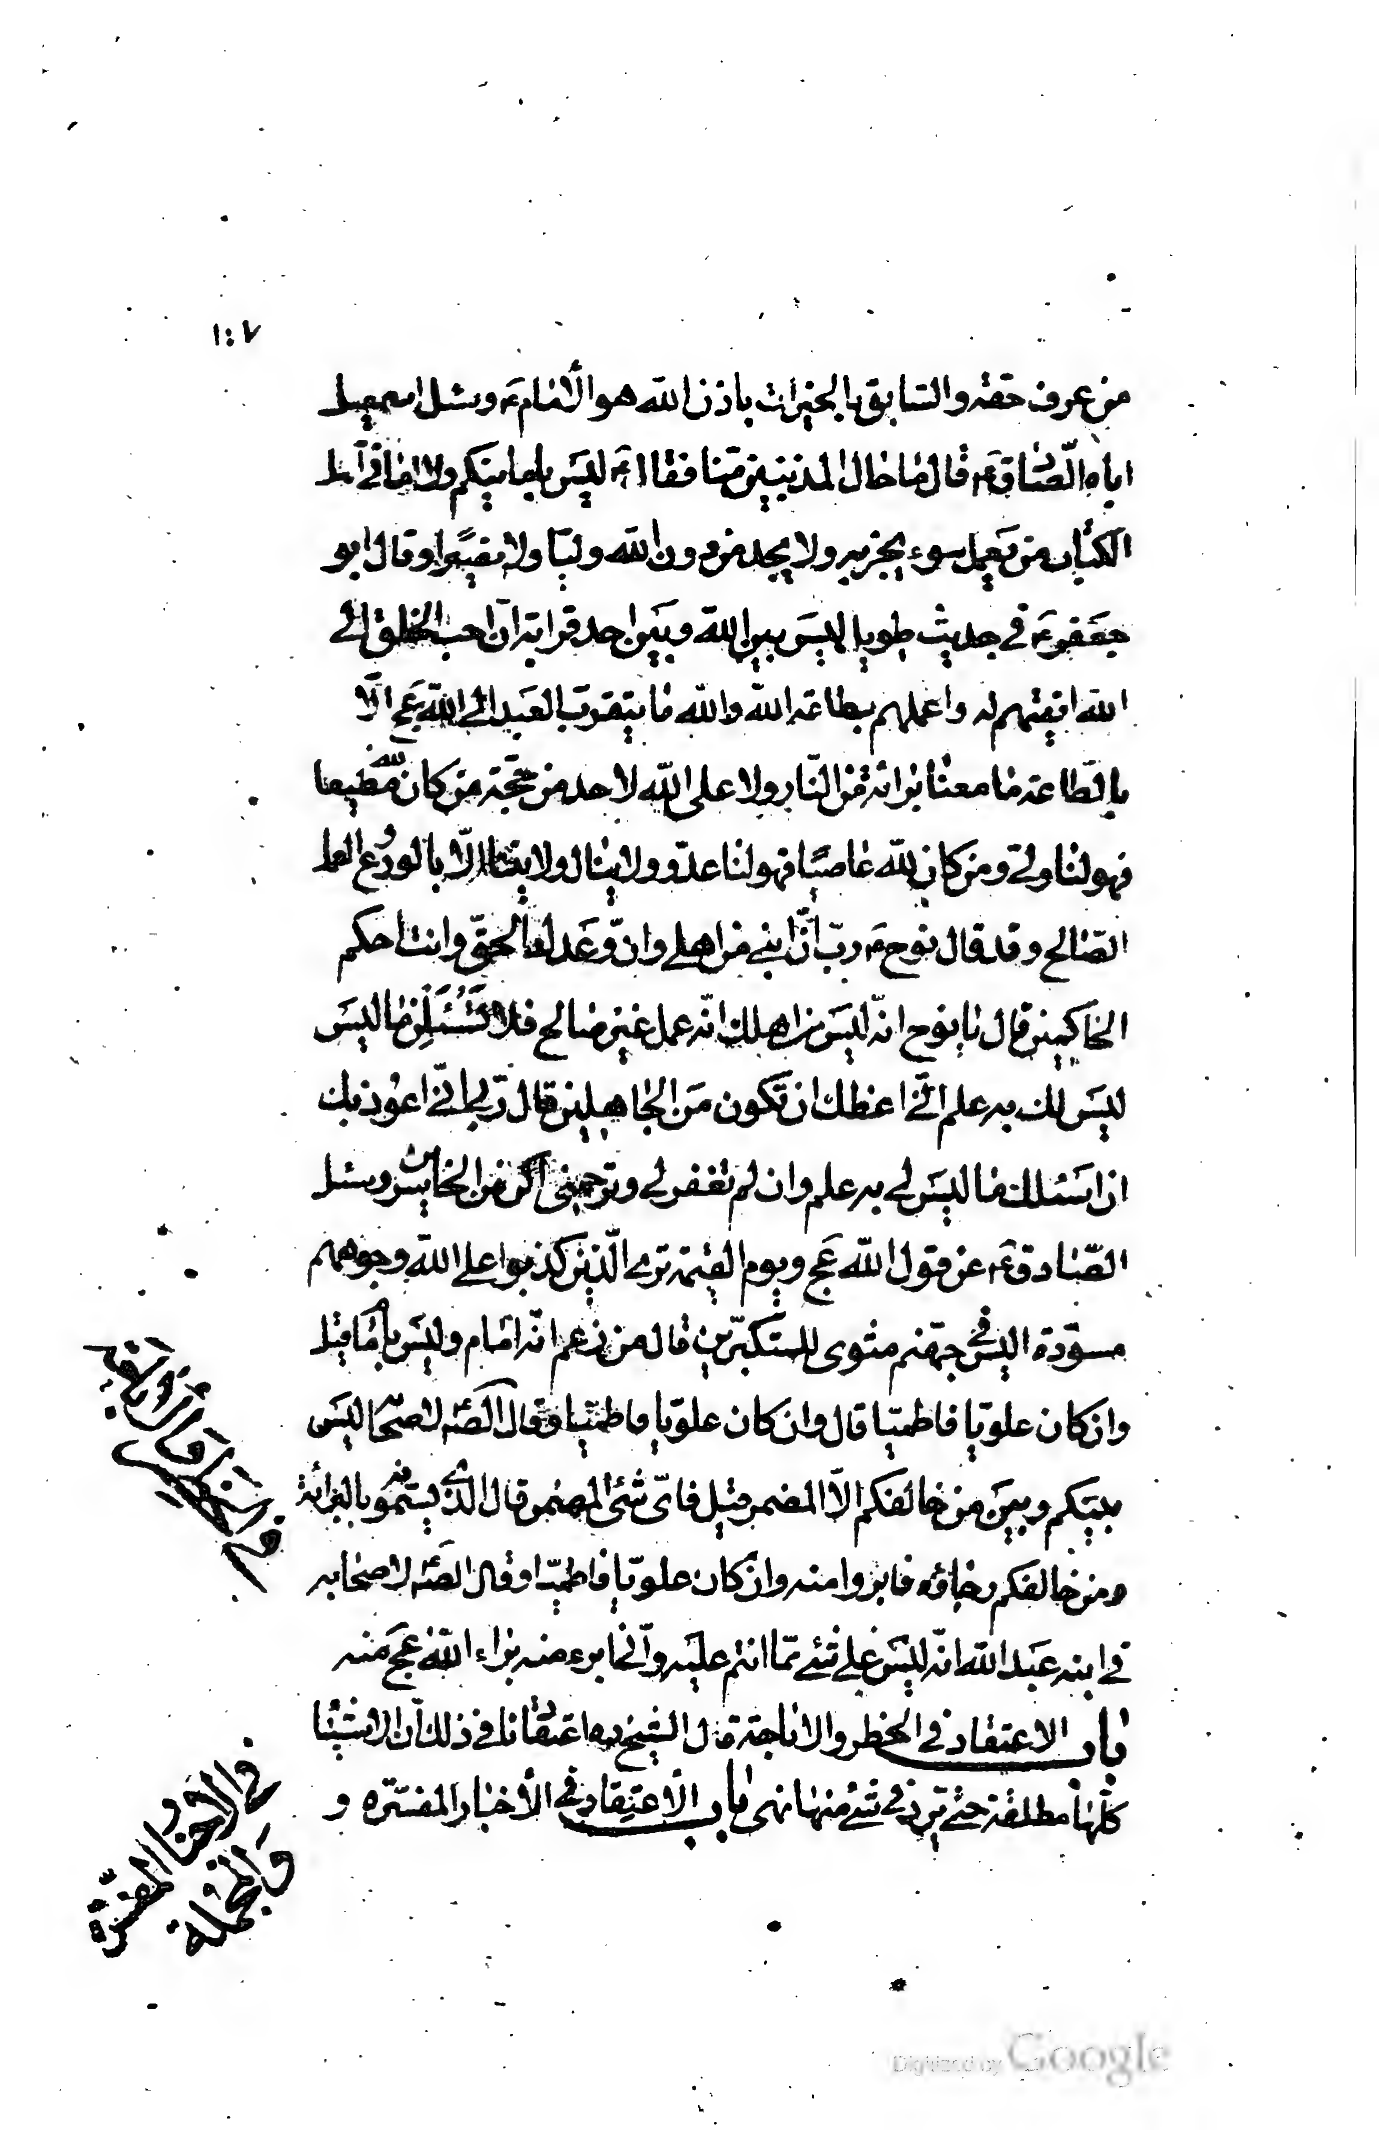 ١٠٧
من عرف حقه والسابق بالخيرات باذن الله هو الامام ع وسئل اسمعيل
اباه الصادق ع قال ما حال المذنبين منا فقال ع ليس بامانيكم ولا امانى اهل
الكتاب من يعمل سوء يجز به ولا يجد من دون الله وليا ولا نصيرا وقال ابو
جعفر ع في حديث طويل ليس بين الله وبين احد قرابة ان احب الخلق الى
الله اتقيهم له واعملهم بطاعة الله والله ما يتقرب العبد الى الله عج الا
بالطاعة ما معنا براءة من النار ولا على الله لاحد من حجة من كان لله مطيعا
فهو لنا ولى ومن كان لله عاصيا فهو لنا عدو ولا ينال ولايتنا الا بالورع والعمل
الصالح وقد قال نوح ع رب ان ابنى من اهلى وان وعدك الحق وانت احكم
الحاكمين قال يا نوح انه ليس من اهلك انه عمل غير صالح فلا تسئلن ما ليس
ليس لك به علم انى اعظك ان تكون من الجاهلين قال رب انى اعوذ بك
ان اسئلك ما ليس لى به علم وان لم تغفر لى وترحمنى اكن من الخاسرين وسئل
الصادق ع عن قول الله عج ويوم القيمة ترى الذين كذبوا على الله وجوههم
مسودة اليس فى جهنم مثوى للمتكبرين قال من زعم انه امام وليس بامام قيل
وان كان علويا فاطميا قال وان كان علويا فاطميا وقال الص ع لاصحابه ليس
بينكم وبين من خالفكم الا المضمر قيل فاى شئ المضمر قال الذى يسمونه بالبراءة
ومن خالفكم وجازه فابروا منه وان كان علويا فاطميا وقال الص ع لاصحابه
في ابنه عبد الله انه ليس على شئ مما انتم عليه وانى ابرء منه براء الله عج منه
باب الاعتقاد فى الحظر والاباحة قال الشيخ ره اعتقادنا فى ذلك ان الاشيئا
كلها مطلقة حتى يرد فى شئ منها نهى باب الاعتقاد فى الاخبار المفسره و
في الاخبار المفسرة
والمجملة